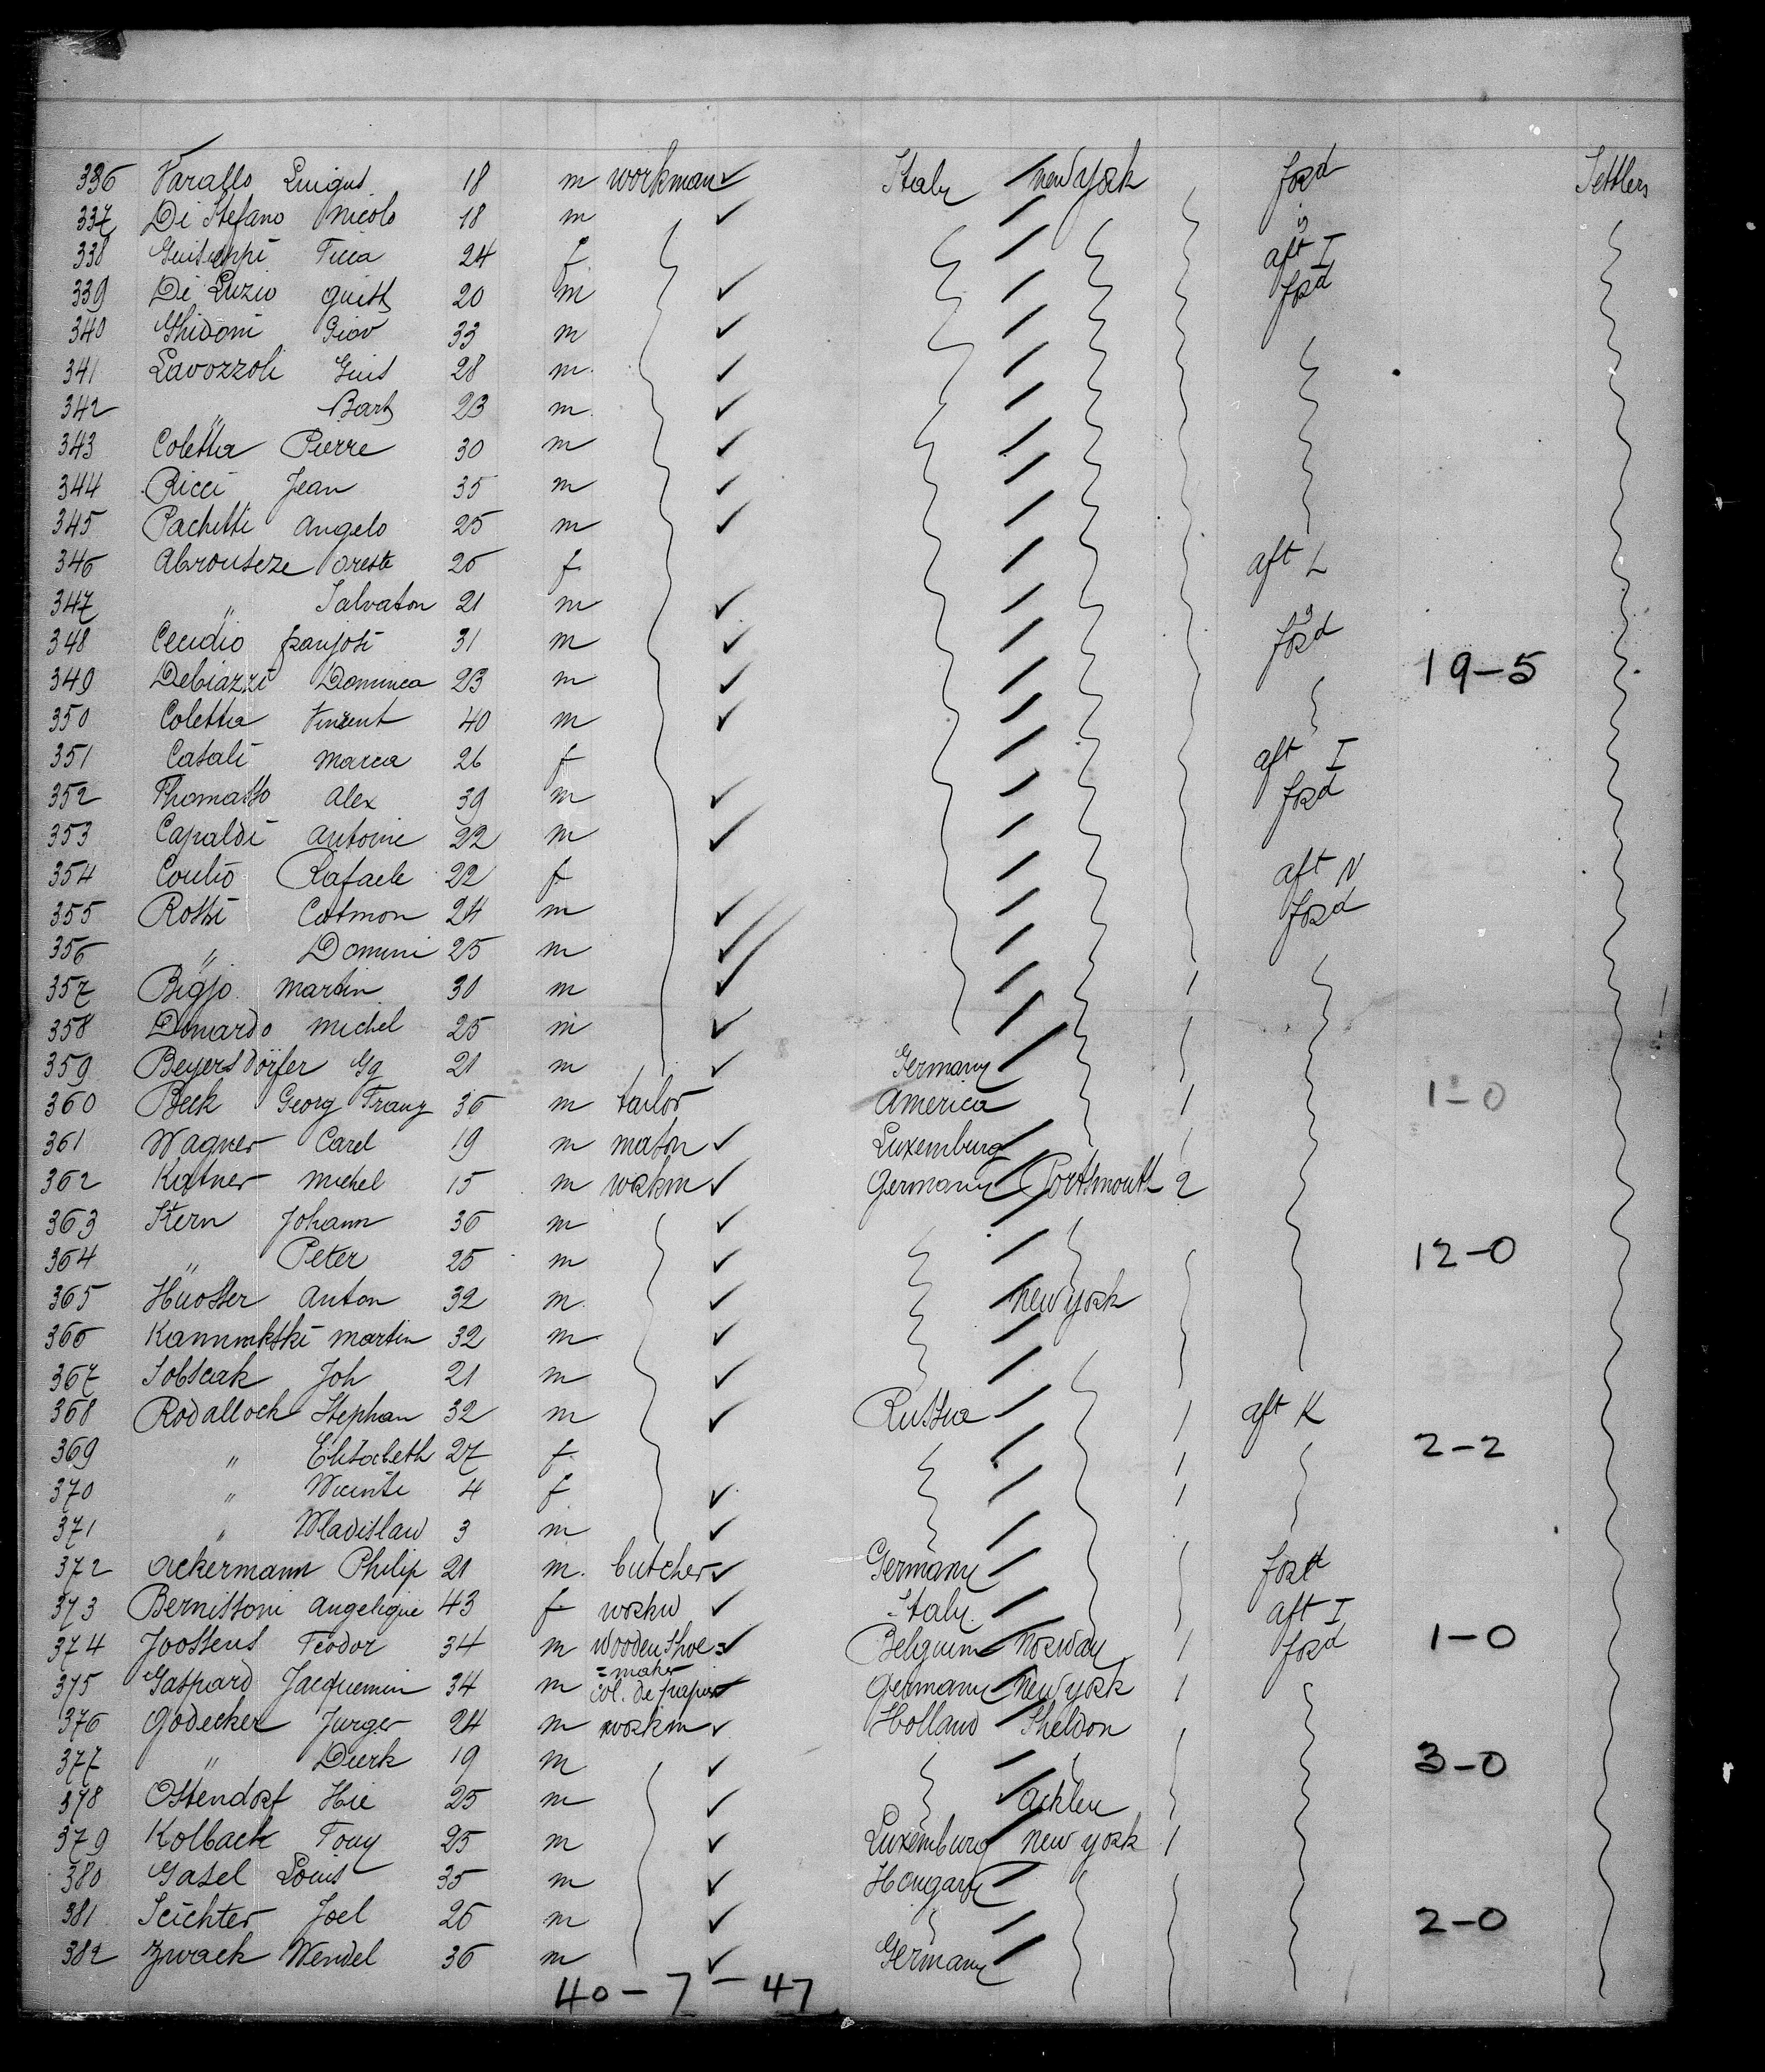 336 Varallo Luigus 18 m workman Italy new york forwd Settlers
337 Di Stefano Nicolo 18 m
338 Guiseppi Ticca 24 f aft I
339 Di Luzio guist 20 m forwd
340 Ghidoni Giov 33 m
341 Lavozzoli Guis 28 m
342 " Bart 23 m
343 Coletta Pierre 30 m
344 Ricci Jean 35 m
345 Pachitti angelo 25 m
346 Abrouseze oreste 26 f aft L
347 " Salvaton 21 m
348 31 m forwd
349 Debiazzi Dominica 23 m 19-5
350 Coletta Vincent 40 m
351 Casali maria 26 f aft I
352 Thomasso Alex 39 m forwd
353 Capaldi antoine 22 m
354 Coulio Rafaele 22 f aft N
355 Rossi Cotmon 24 m forwd
356 " Domini 25 m
357 Bigjo martin 30 m 1
358 Donardo michel 25 m
359 Beyersdorfer Gg 21 m Germany
360 Beck Georg Franz 36 m tailor America 1 1-0
361 Wagner Carel 19 m mason Luxemburg 1
362 Katner michel 15 m workm Germany Portsmouth 2
363 Stern Johann 36 m
364 " Peter 25 m 12-0
365 Huosser Anton 32 m new york
366 martin 32 m
367 Sobscak Joh 21 m
368 Rodallock Stephan 32 m Russia 1 aft K
369 " Elisabeth 27 f 1 2-2
370 " 4 f 1
371 " Wladislaw 3 m
372 Ackermann Philip 21 m butcher Germany forwd
373 Bernissoni Angelique 43 f workw Italy aft I
374 Joossens Teodor 34 m wooden shoe= Belgium Norway 1 forwd 1-0
=maker
375 Gaspard Jacquemin 34 m col. de papier Germany new york 1
376 Godecker Jurger 24 m workm Holland Sheldon
377 " Dierk 19 m 3-0
378 Ostendorf Hie 25 m ackley
379 Kolbach Tony 25 m Luxemburg new york 1
380 Gasel Louis 35 m Hongary
381 Seichter Joel 26 m " 2-0
382 Zwack Wendel 36 m Germany
40-7-47